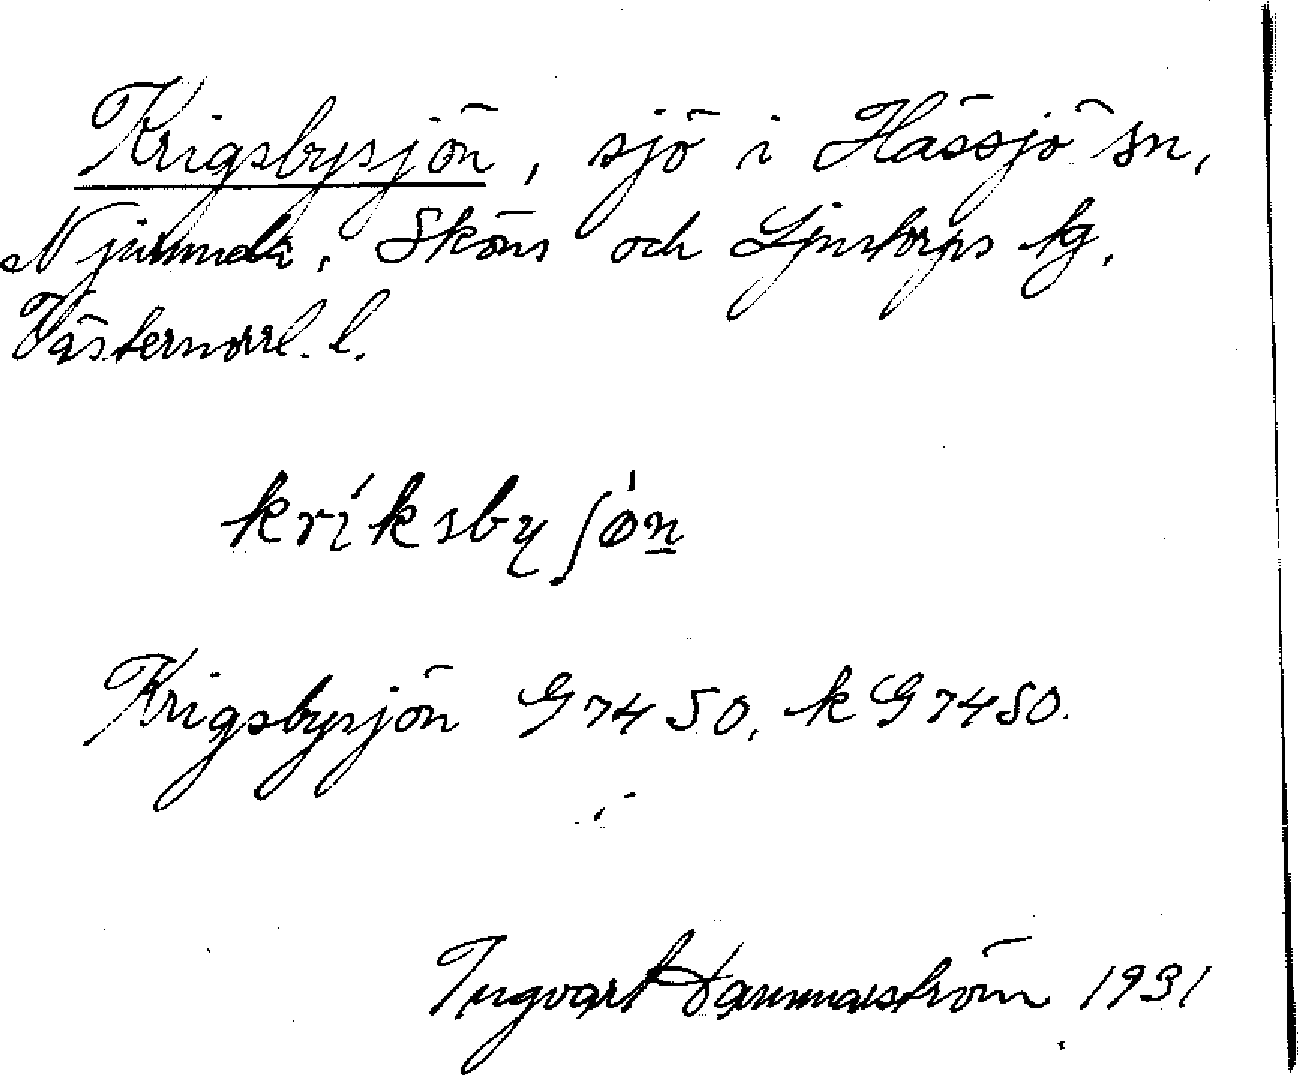 Krigsbysjön, sjö i Hässjö sn,
Njurunda, Sköns och Ljustorps tg,
Västernorrl. l.
kríksbyʃǿn
Krigsbysjön G 7450, k G 7450.
Ingvart 1931